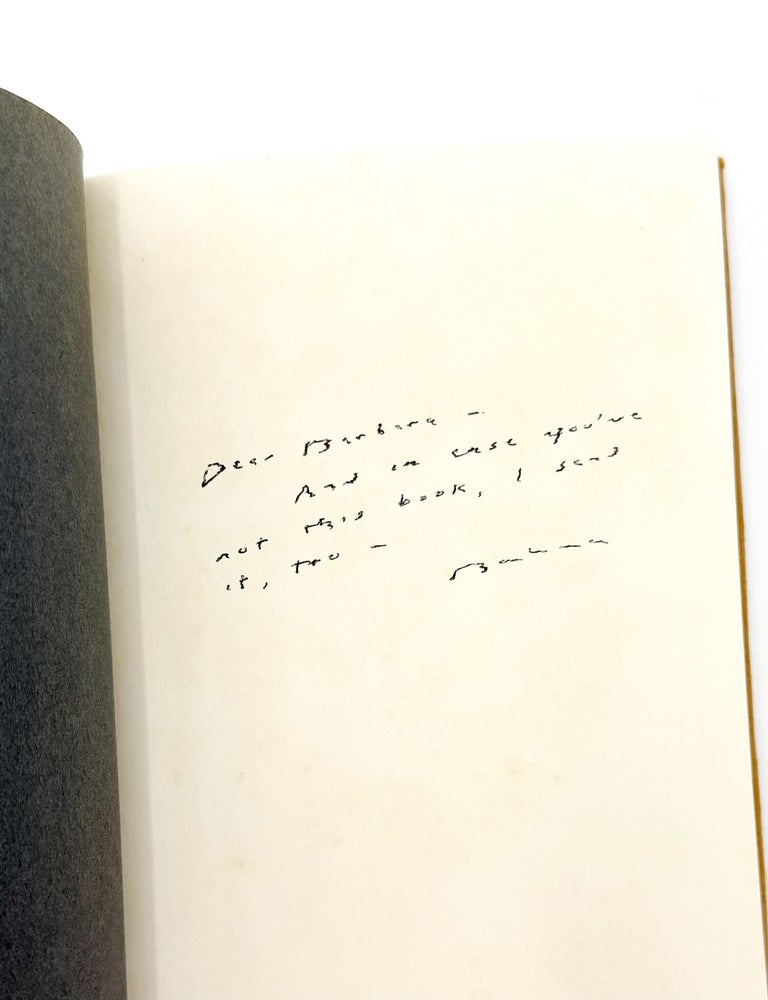 Dear Barbara –
And in case you've
not this book, I send
it, too –